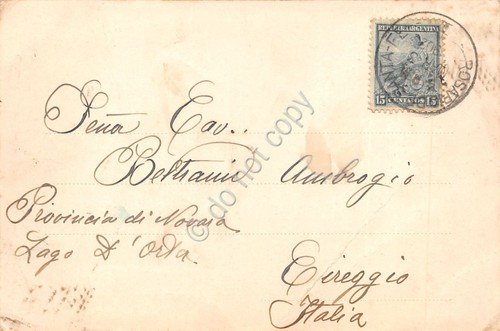 REPUBLICA ARGENTINA
15 CENTAVOS 15
SANTA-FÉ
ROSARIO
Señor Cav.
Beltrami Ambrogio
Provincia di Novara
Lago D'Orta
Cireggio
Italia
do not copy